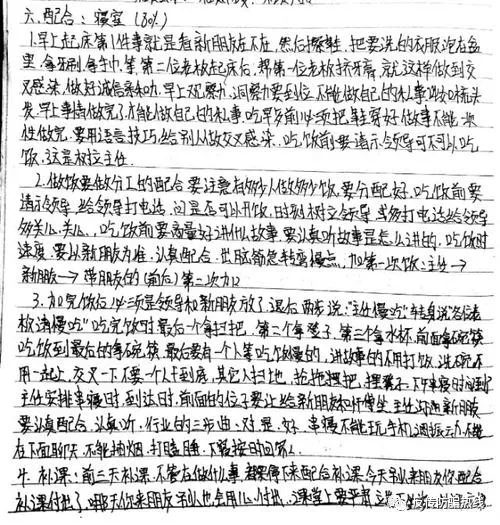 六、配合：寝室（80%）
1.早上起床第1件事就是看新朋友在不在，然后擦鞋，把要洗的衣服泡在盆
里，拿牙刷，拿毛巾，等第二位老板起床后，帮第一位老板挤牙膏，就这样做到交
叉感染，做好诚信系动，早上观察，洞察要到位，不能做自己的私事，比如梳头
发，早上事情做完了才能做自己的私事，吃早发前必须把鞋穿好，做事不能一次
性做完，要用语言技巧给别人做交叉感染，吃饭前要请示领导可不可以吃
饭，这是树立主任。
2.做饭要做分工的配合，要注意有够少人做够少饭，要分配好，吃饭前要
请示领导，给领导打电话，问是否可以开饭，时刻树立领导，或多打电话给领导
多关心，关心，吃饭前要商量好讲什么故事，要认真听故事是怎么讲的，吃饭时
速度，要以新朋友为准，认真配合，世脑筋急转弯慢点，加第一次饭：主任→
新朋友→带朋友的（前后）第二次加
3.加完饭后必须是领导和新朋友放了退后两步说："主任慢吃"转身说"各位老
板请慢吃"吃完饭时最后一个拿扫把，第二个拿凳子，第三个拿水杯，前面拿碗筷
吃饭到最后的拿碗筷，最后要有一个人等吃饭慢的，讲故事的不用打饭，洗碗不
用一起上，交叉一下，不要一个人干到底，其它人扫地，抢拖摆把，摆凳子，下午串寝时间到
主任安排串寝时，到达时，前面的位子要让给新朋友和叶惯坐，主任欢迎新朋友
要认真配合，认真听，行业的三步曲：对、是、好，串寝不能玩手机调振动，不能
在下面聊天，不能抽烟，打瞌睡，不能按时回家。
4.补课：前三天补课，不管在做什么事，都要停下来配合补课，今天别人来朋友你配合
补课付出了，哪天你来朋友别人也会用心付出，课堂上要平静